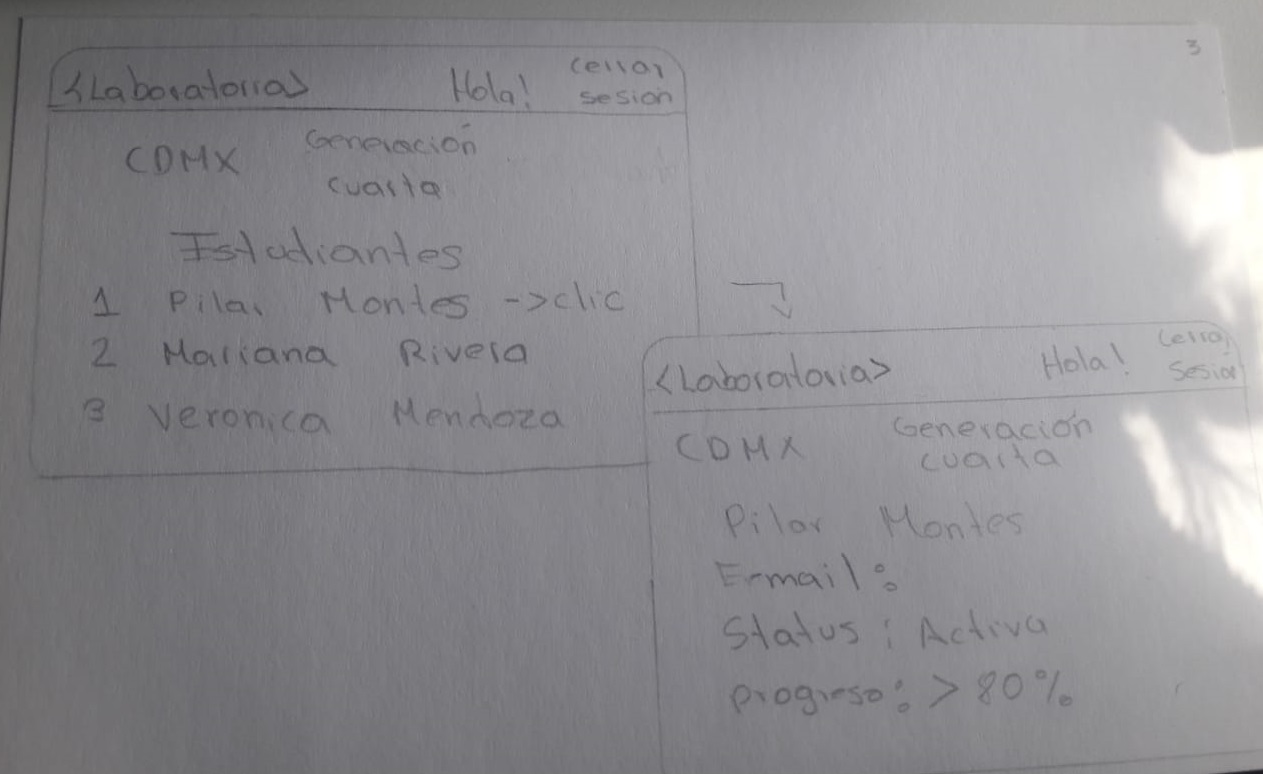 3
<Laboratoria> Hola! cerrar
sesion
CDMX Generación
cuarta
Estudiantes
1 Pilar Montes -> clic
2 Mariana Rivera
3 Veronica Mendoza
<Laboratoria> Hola! cerrar
sesion
CDMX Generación
cuarta
Pilar Montes
E-mail:
Status: Activa
progreso: > 80%